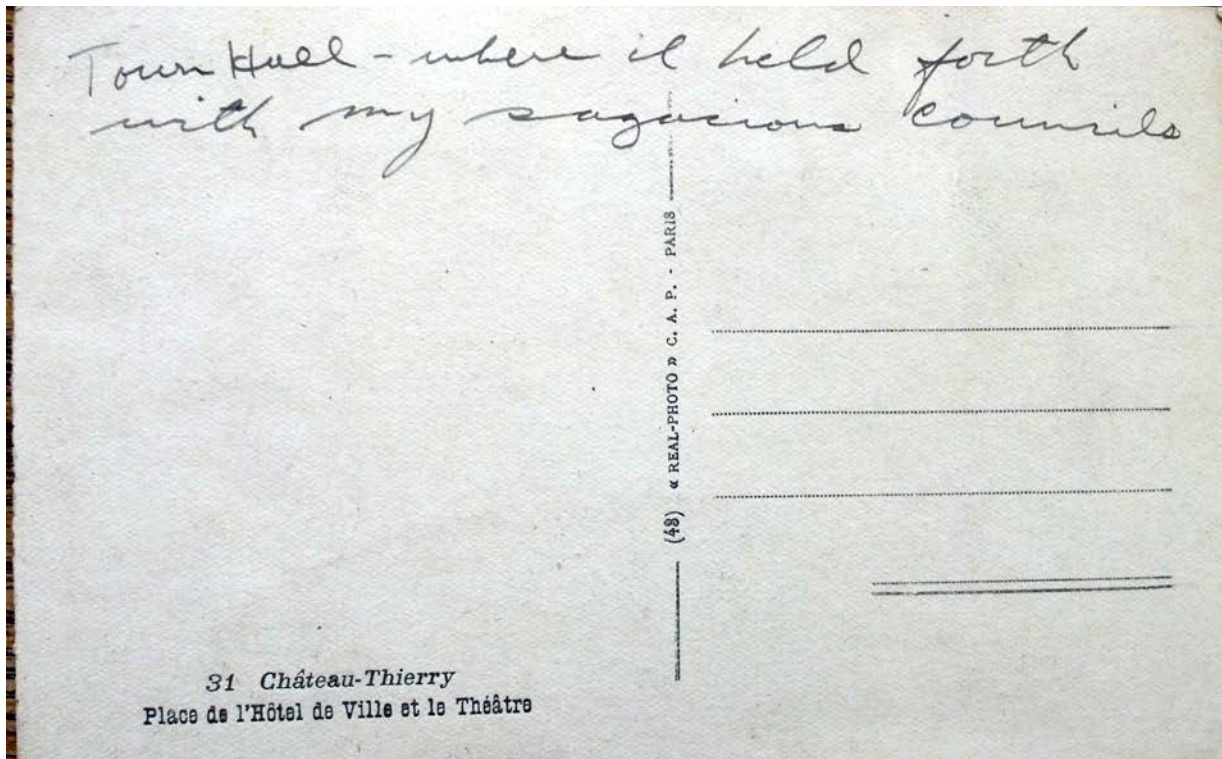 Town Hall - where I held forth
with my sagacious Councils
(48) « REAL-PHOTO » C. A. P. - PARIS
31 Château-Thierry
Place de l'Hôtel de Ville et le Théâtre